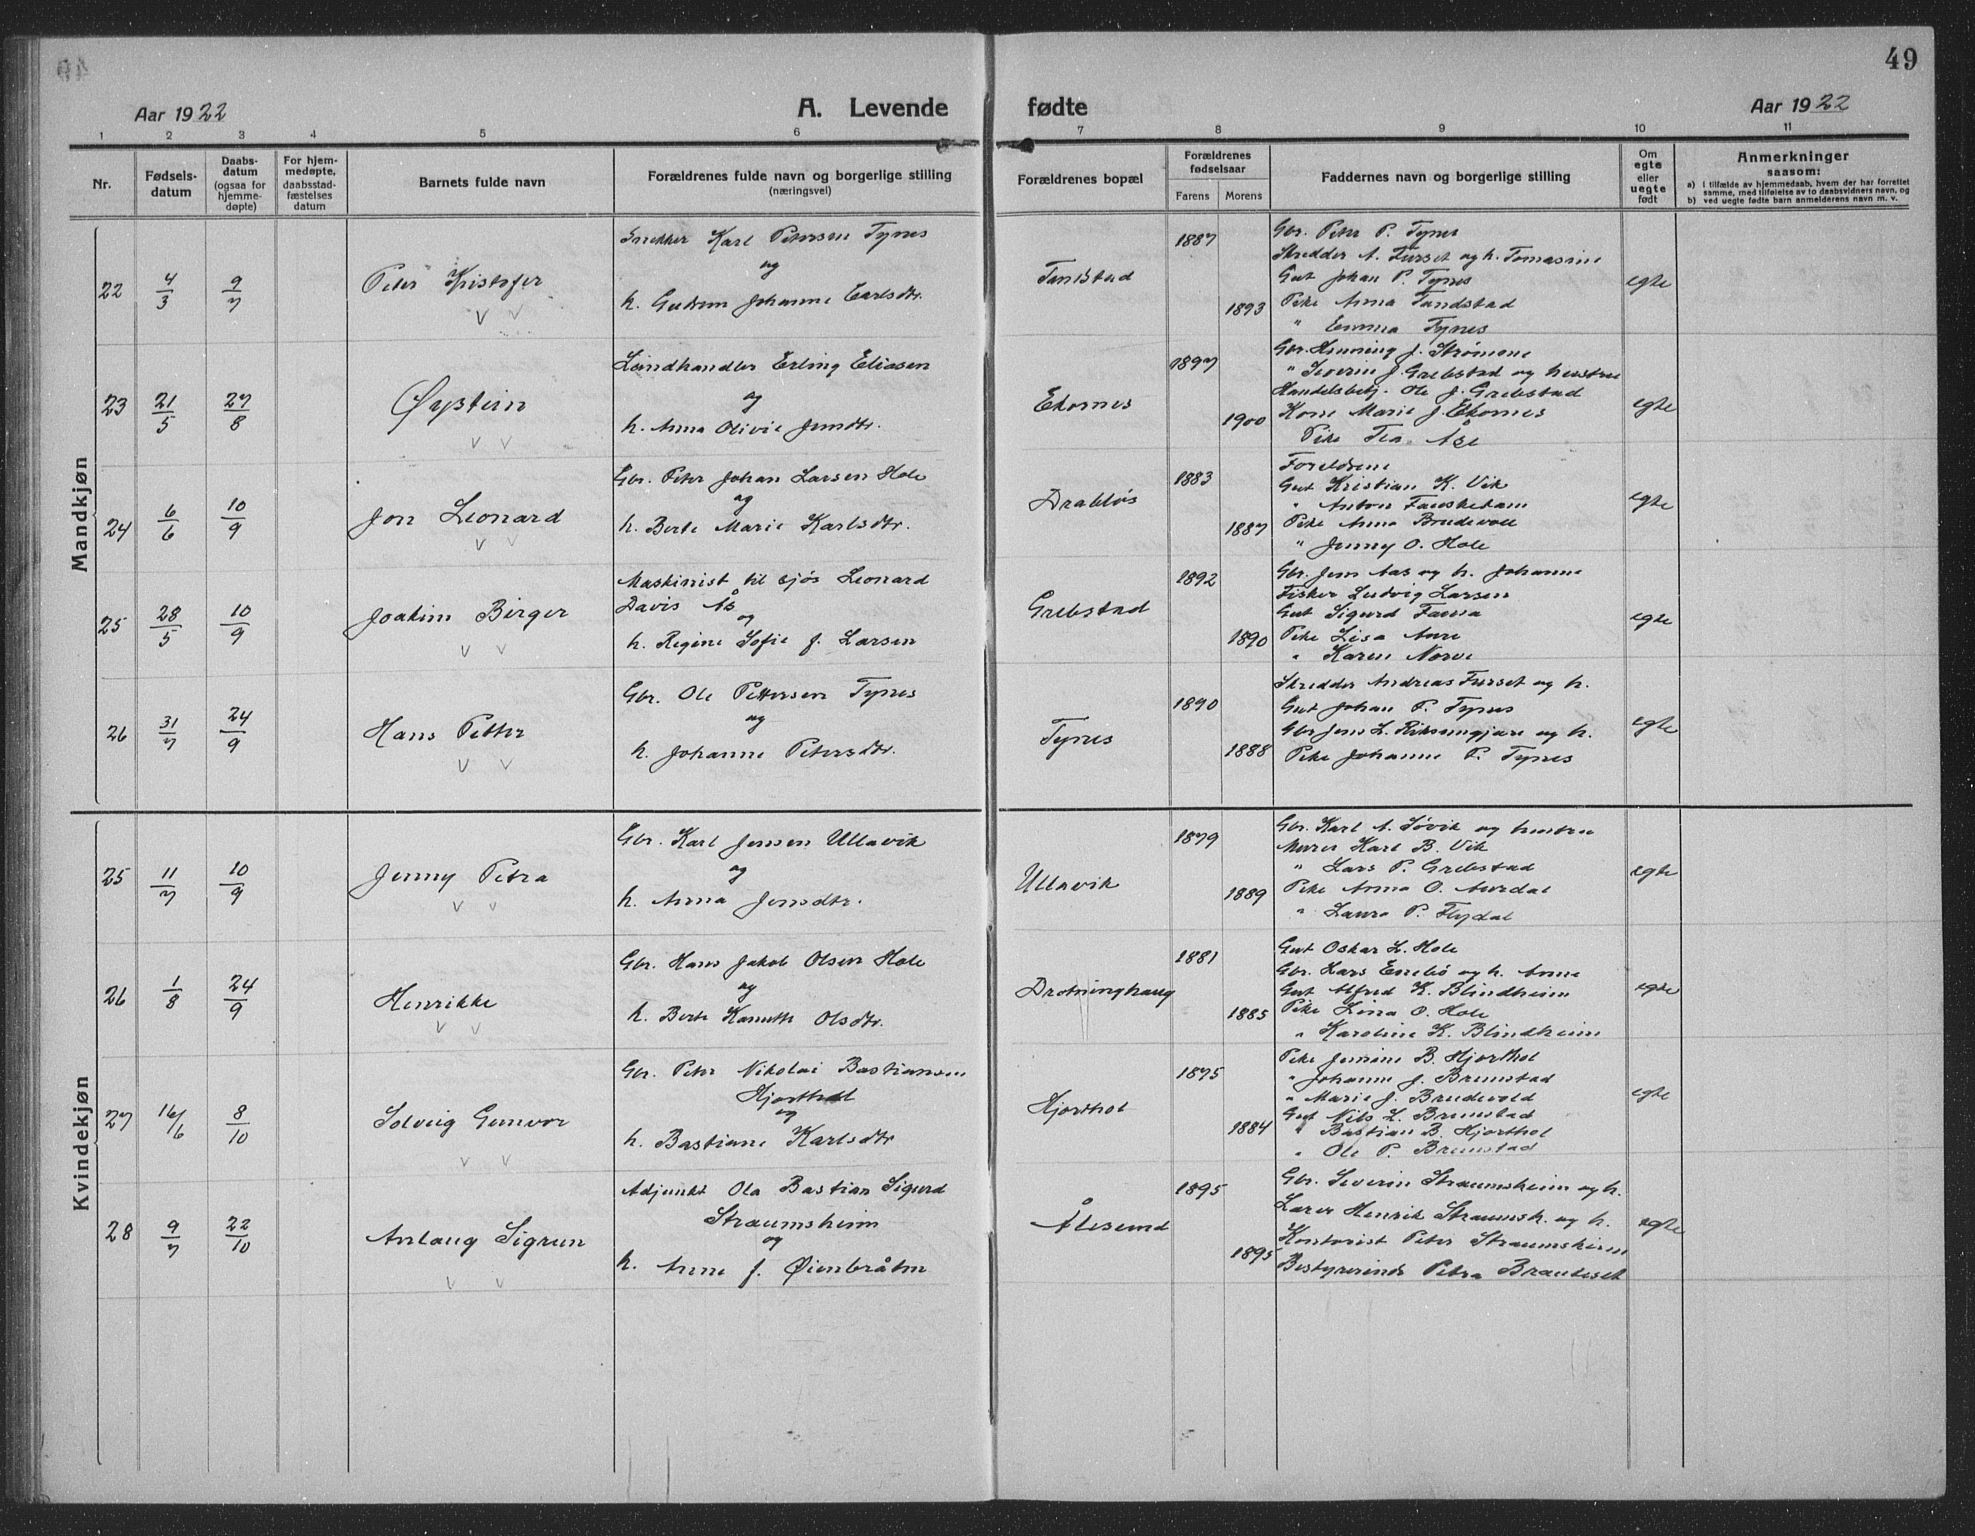 49
Aar 1922
A. Levende fødte
Aar 1922
1 2 3 4 5 6 7 8 9 10 11
Nr.
Fødsels-
datum
Daabs-
datum
(ogsaa for
hjemme-
døpte)
For hjem-
medøpte,
daabsstad-
fæstelses
datum
Barnets fulde navn
Forældrenes fulde navn og borgerlige stilling
(næringsvei)
Forældrenes bopæl
Forældrenes
fødselsaar
Farens Morens
Faddernes navn og borgerlige stilling
Om
egte
eller
uegte
født
Anmerkninger
saasom:
a) i tilfælde av hjemmedaab, hvem der har forrettet
samme, med tilføielse av to daabsvidners navn, og
b) ved uegte fødte barn anmelderens navn m. v.
Mandkjøn
22 4/3 9/7 Peter Kristofer
Snekker Karl Petersen Tynes
og
h. Gudrun Johanne Carlsdtr.
Tandstad
1887
1893
Gbr. Peter P. Tynes
Skredder A. Furset og h. Tomasine
Gut Johan P. Tynes
Pike Anna Tandstad
" Emma Tynes
egte
23 21/5 27/8 Øystein
Landhandler Erling Eliasen
og
h. Anna Olivie Jensdtr.
Ekornes
1897
1900
Gbr. Henning J. Strømme
" Severin J. Grebstad og hustru
Handelsbetj. Ole J. Grebstad
Kone Marie J. Ekornes
Pike Tea Åse
egte
24 6/6 10/9 Jon Leonard
Gbr. Peter Johan Larsen Hole
og
h. Berte Marie Karlsdtr.
Drabløs
1883
1887
Foreldrene
Gut Kristian K. Vik
" Anton Fauskeham
Pike Anna Brudevoll
" Jenny O. Hole
egte
25 28/5 10/9 Joakim Birger
Maskinist til sjøs Leonard
Davis Ås
og
h. Regine Sofie f. Larsen
Grebstad
1892
1890
Gbr. Jens Aas og h. Johanne
Fisker Ludvig Larsen
Gut Sigurd
Pike Lisa Aure
" Karen Norve
egte
26 31/7 24/9 Hans Petter
Gbr. Ole Pettersen Tynes
og
h. Johanne Petersdtr.
Tynes
1890
1888
Skredder Andreas Furset og h.
Gut Johan P. Tynes
Gbr Jens L. og h.
Pike Johanne P. Tynes
egte
Kvindekjøn
25 11/7 10/9 Jenny Petra
Gbr. Karl Jensen Ullavik
og
h. Anna Jensdtr.
Ullavik
1879
1889
Gbr. Karl A. Søvik og hustru
Murer Karl B. Vik
" Lars P. Grebstad
Pike Anna O. Aurdal
" Laura P. Flydal
egte
26 1/8 24/9 Henrikke
Gbr. Hans Jakob Olsen Hole
og
h. Berte Olsdtr.
Drotninghaug
1881
1885
Gut Oskar L. Hole
Gbr. Lars Emebø og h. Anne
Gut Alfred K. Blindheim
Pike Lina O. Hole
" Karoline K. Blindheim
egte
27 16/6 8/10 Solveig Gunvor
Gbr. Peter Nikolai Bastiansen
Hjorthol
og
h. Bastiane Karlsdtr
Hjorthol
1875
1884
Pike Jensine B. Hjorthol
" Johanne J. Brunstad
" Marie J. Brudevold
Gut Nils L. Brunstad
" Bastian B. Hjorthol
" Ole P. Brunstad
egte
28 9/7 22/10 Aslaug Sigrun
Adjunkt Ola Bastian Sigurd
Straumsheim
og
h. Anne f. Øienbråten
Ålesund
1895
1895
Gbr. Severin Straumsheim og h.
Lærer Henrik Straumsh. og h.
Kontorist Peter Straumsheim
Bestyrerinde Petra Brauteset
egte